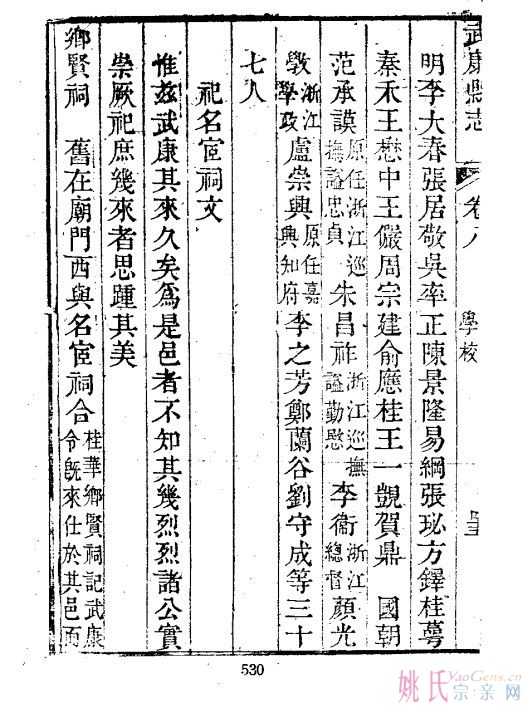 武康縣志 卷八 學校
明李大春張居敬吳率正陳景隆易綱張珌方鐸桂蕚
秦禾王懋中王儼周宗建俞應桂王一覬賀鼎 國朝
范承謨原任浙江巡撫諡忠貞朱昌祚浙江巡撫諡勤愍李衞浙江總督顏光
斆浙江學政盧崇興原任嘉興知府李之芳鄭蘭谷劉守成等三十
七人
祀名宦祠文
惟茲武康其來久矣爲是邑者不知其幾烈烈諸公實
崇厥祀庶幾來者思踵其美
鄉賢祠 舊在廟門西與名宦祠合桂華鄉賢祠記武康令旣來仕於其邑而
530
姚氏宗亲网
YaoGens.cn